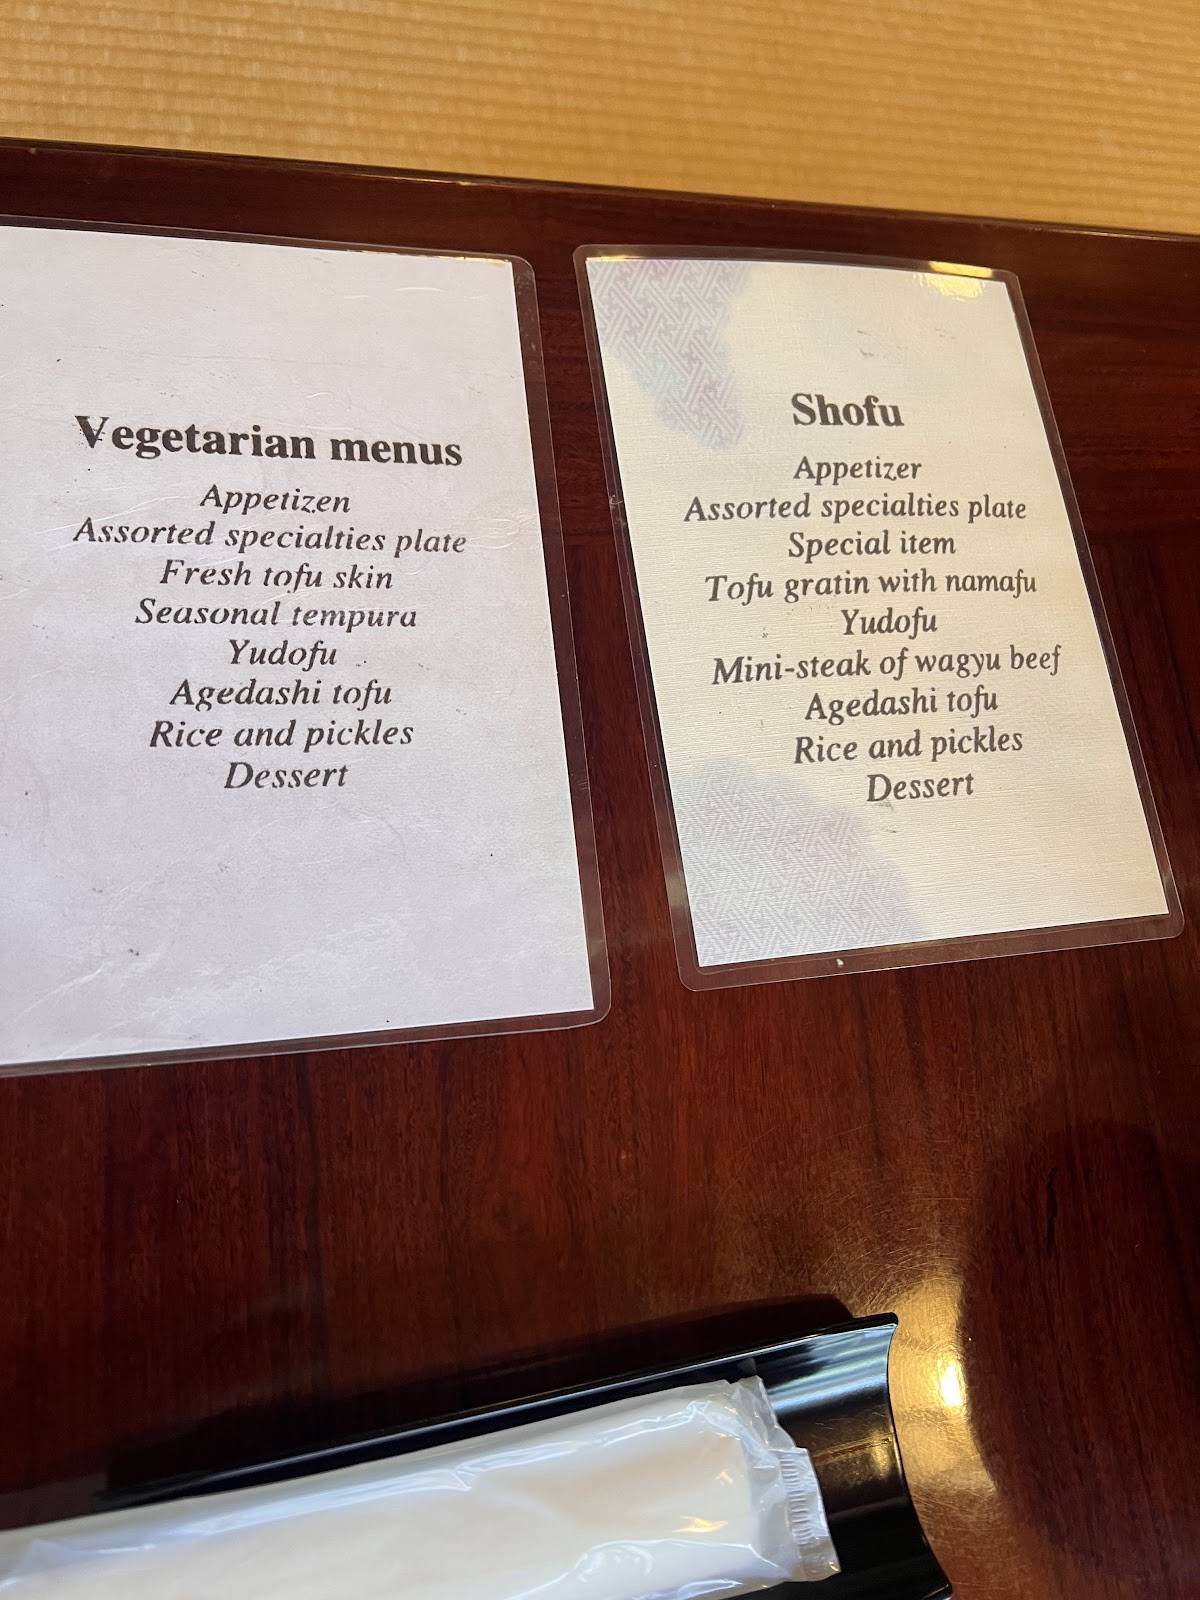 Vegetarian menus
Appetizen
Assorted specialties plate
Fresh tofu skin
Seasonal tempura
Yudofu
Agedashi tofu
Rice and pickles
Dessert
Shofu
Appetizer
Assorted specialties plate
Special item
Tofu gratin with namafu
Yudofu
Mini-steak of wagyu beef
Agedashi tofu
Rice and pickles
Dessert